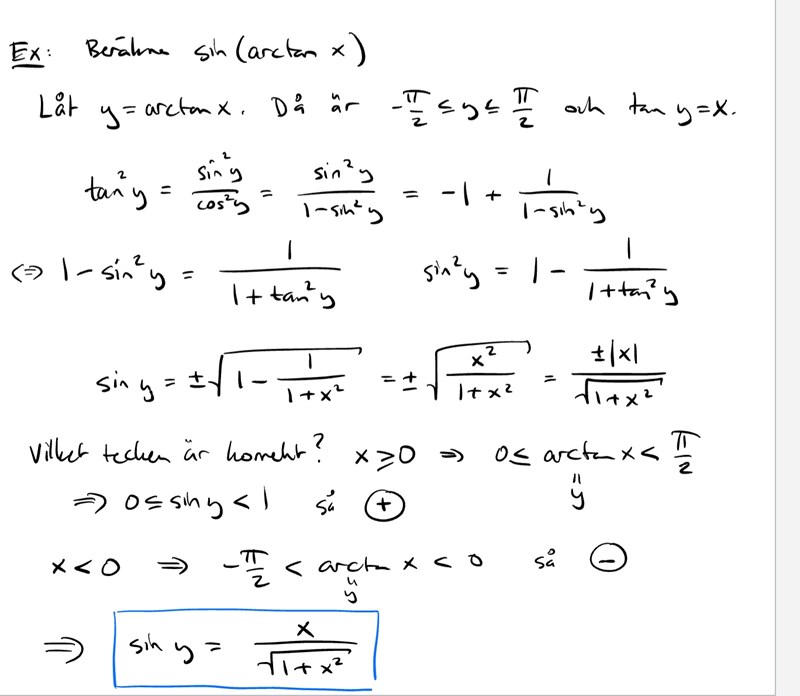 Ex: Beräkna sin(arctan x)
Låt y = arctan x. Då är -π/2 ≤ y ≤ π/2 och tan y = x.
tan²y = sin²y/cos²y = sin²y/(1-sin²y) = -1 + 1/(1-sin²y)
⇔ 1-sin²y = 1/(1+tan²y)   sin²y = 1 - 1/(1+tan²y)
sin y = ±√(1 - 1/(1+x²)) = ±√(x²/(1+x²)) = ±|x|/√(1+x²)
Vilket tecken är korrekt? x ≥ 0 ⇒ 0 ≤ arctan x < π/2
"
y
⇒ 0 ≤ sin y < 1 så (+)
x < 0 ⇒ -π/2 < arctan x < 0 så (-)
"
y
⇒ sin y = x/√(1+x²)